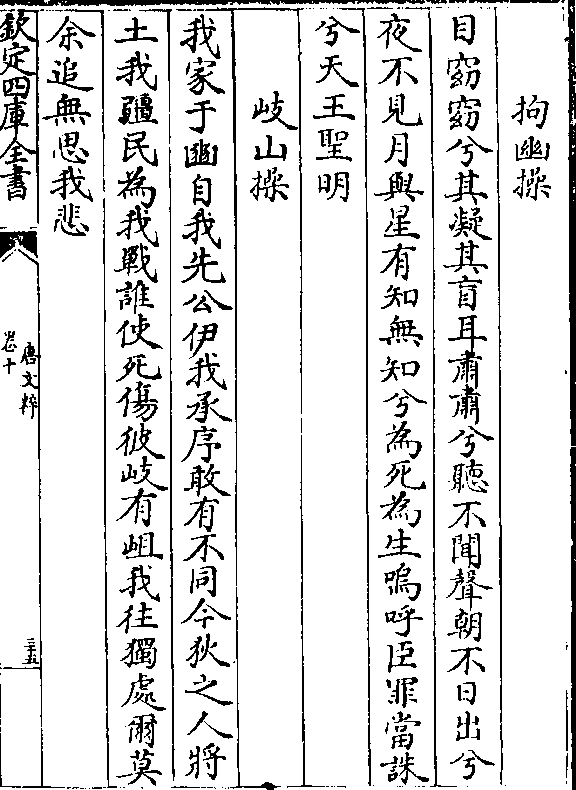 拘幽操
目窈窈兮其凝其盲耳肅肅兮聽不聞聲朝不日出兮
夜不見月與星有知無知兮為死為生嗚呼臣罪當誅
兮天王聖明
岐山操
我家于豳自我先公伊我承序敢有不同今狄之人將
土我疆民為我戰誰使死傷彼岐有岨我往獨處爾莫
余追無思我悲
欽定四庫全書
唐文粹
卷十
三十五